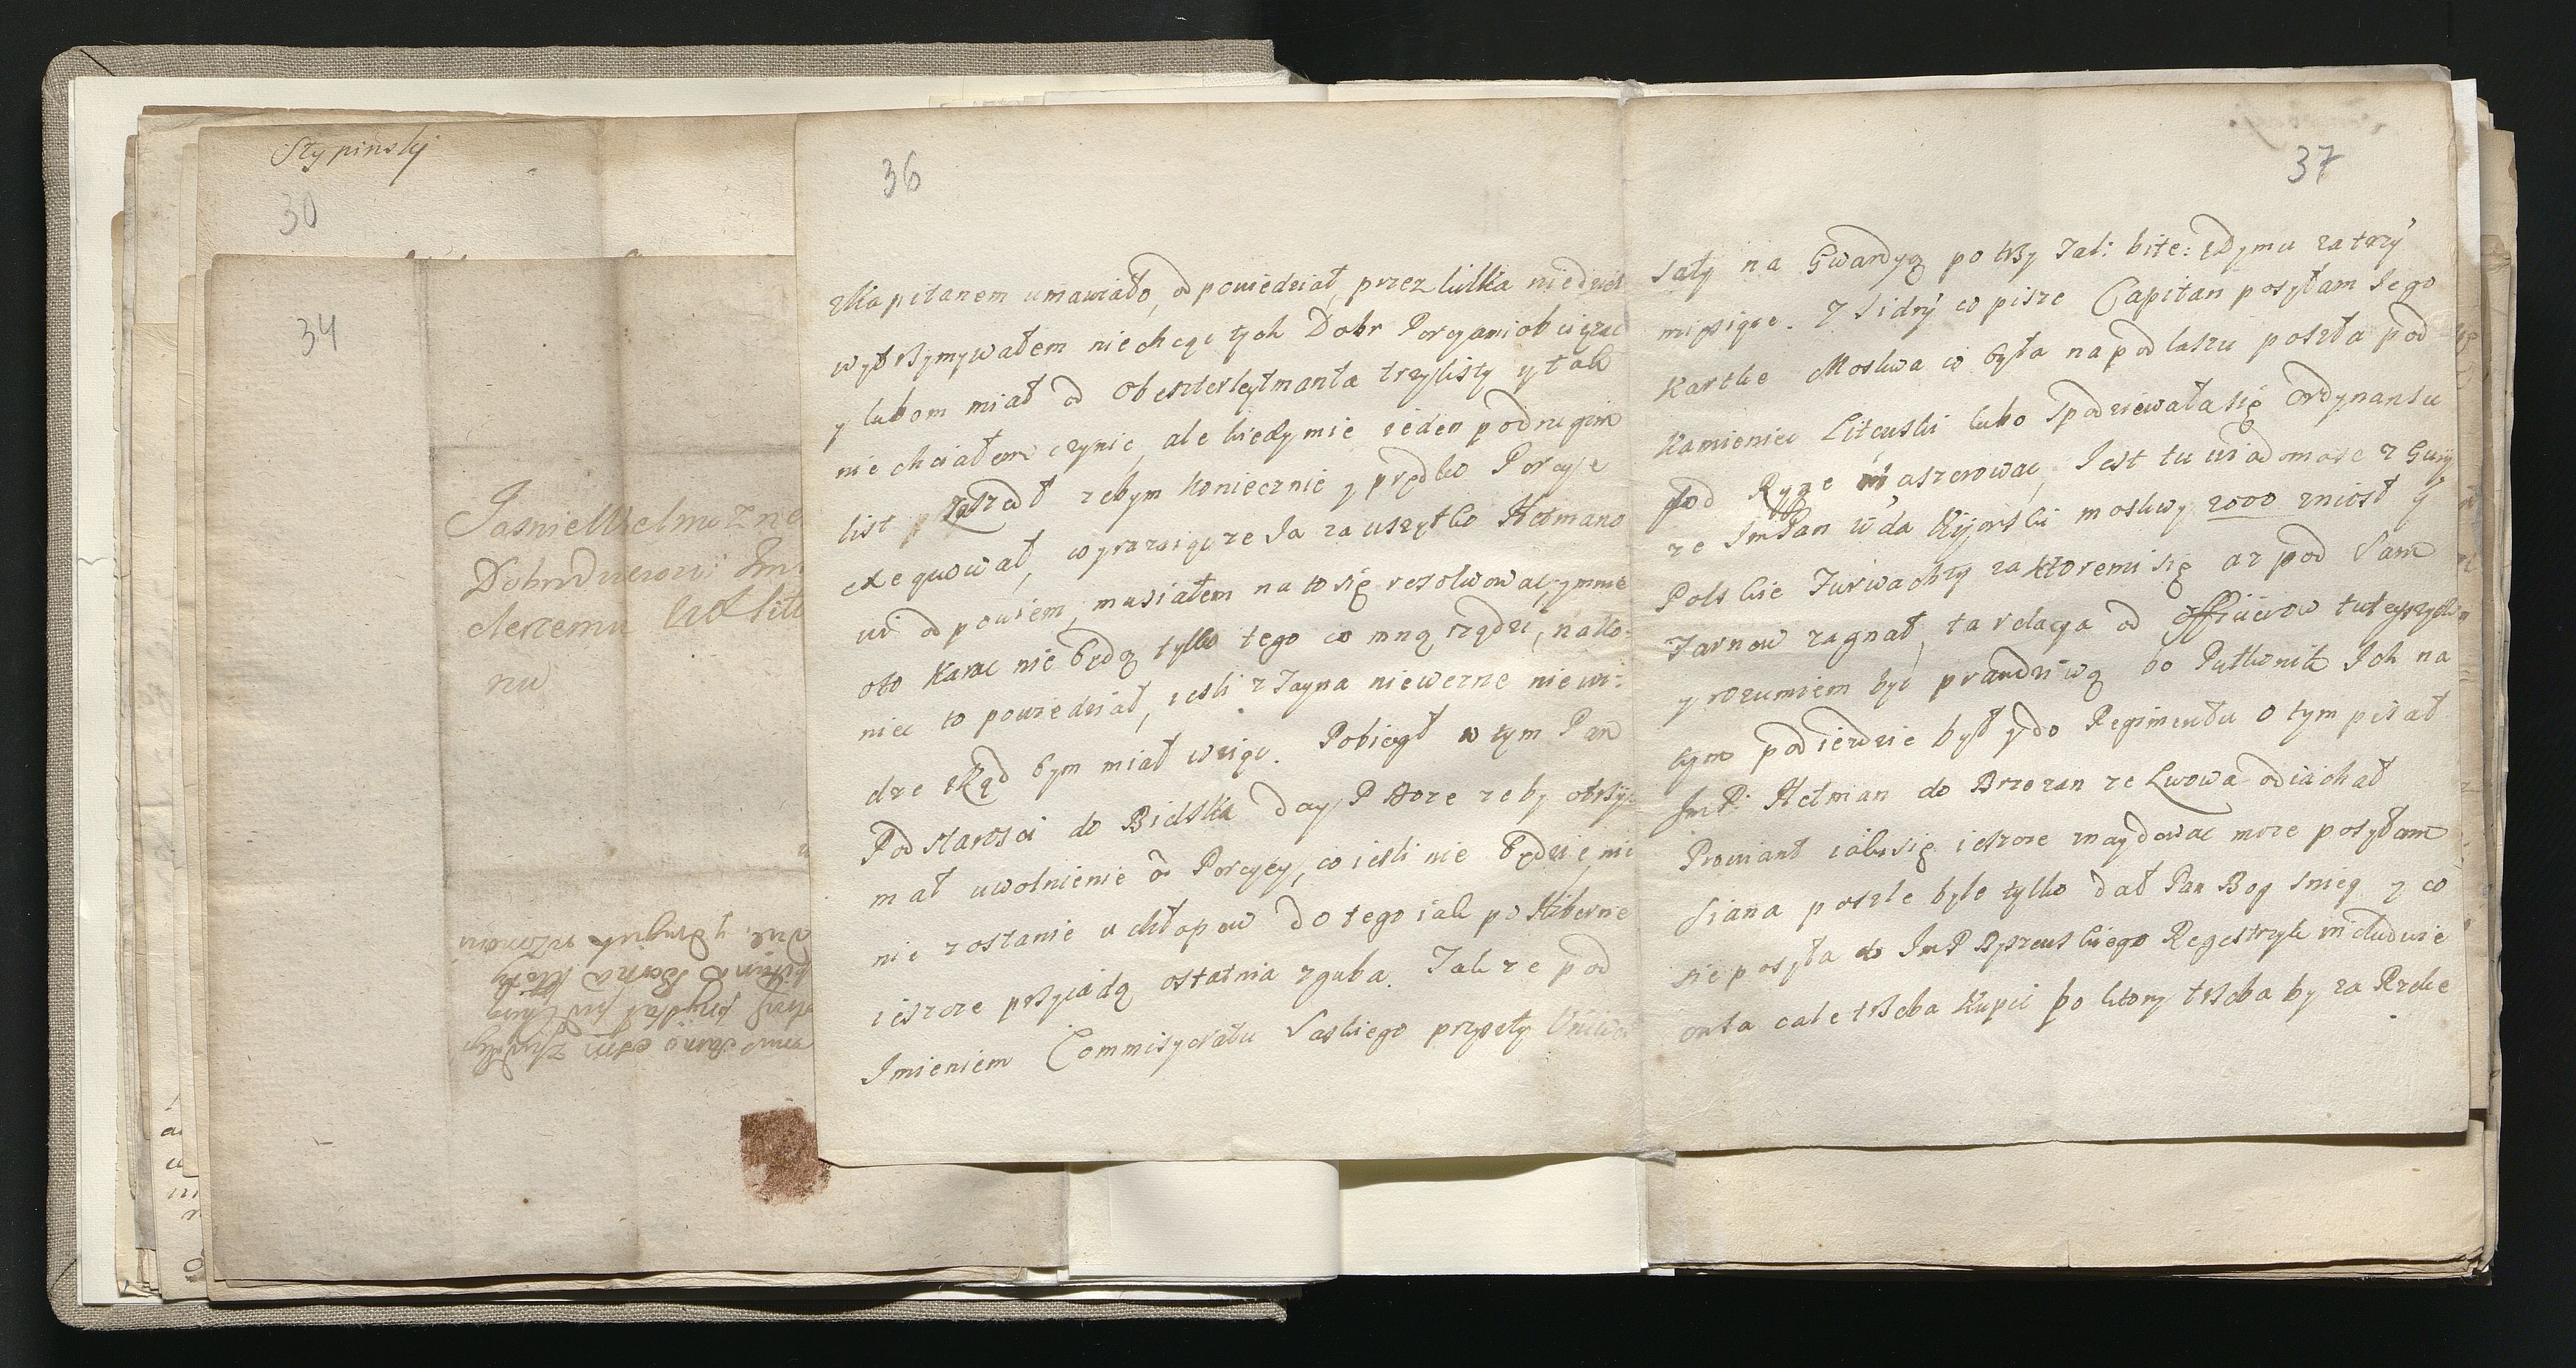 Stypinsky
30
34
JasnieWielmozne
Dobrodzieiowi Im
ru
36
zKapitanem umawiało, odpowiedział, przez kilka niedziel
wytrzymywałem niechcąc tych Dobr Porcyami obciązac
y lubom miał od Obeszterleytmanta trzy listy y tak
nie chciałem czynic, ale kiedy mie ieden po drugim
list zaszedł zebym koniecznie y prędko Porcye
exequował, wyrazaiąc ze Ia za wszytko Hetmano
wi odpowiem, musiałem na to się rezolwowac, y mnie
oto karac nie będą tylko tego co mną rządzi, nako:
niec to powiedział, iesli z Tayna niewezne nie wi:
dze skąd bym miał wziąc. Pobiegł w tym Pan
Podstarosci do Bielska day P Boze zeby otrzy
mał uwolnienie od Porcyey, co iesli nie będzie, ni
nie zostanie u chłopow do tego iak po Hiberne
ieszcze przyiadą ostatnia zguba. Takze pod
Imieniem Commisyoratu Saskiego przyszły Uniwer
37
sały na Gwardyą po trzy Tal: bite: zDymu za trzy
miesiące. Z Sidry co pisze Capitan posyłam Iego
Kartke Moskwa co była na podlaszu poszła pod
Kamieniec Litewski lubo spodziewała się Ordynansu
pod Ryge maszerowac, Iest tu wiadomosc z Gury
ze ImPan Wda Kijowski moskwy 2000 zniosł y
Polskie Furwachty za ktoremi się az pod Sam
Tarnow zagnał, ta relacya od officierow tuteyszych
y rozumiem byc prawdziwą bo Pułkwnik Ich na
tym podiezdzie był y do Regimentu o tym pisał
ImP: Hetman do Brzezan ze Lwowa odiachał
Prowiant iaki się ieszcze znaydowac moze posyłam
Siana poszle byle tylko dał Pan Bog snieg y co
sie posyła do ImP Ryszewskiego Regestrzyk includuie
owsa cale trzeba kupic po ktory trzeba by za Rzeke